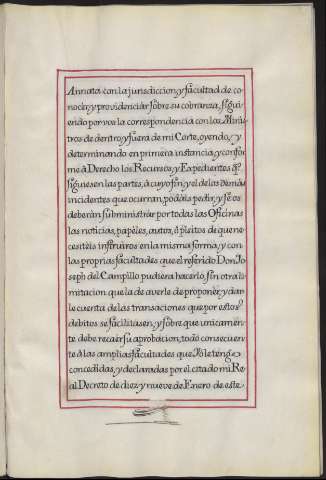 Annata con la jurisdiccion, y facultad de co
nocer, y providenciar sobre su cobranza, sigui
endo por vos la correspondencia con los Minis
tros de dentro, y fuera de mi Corte, oyendo, y
determinando en primera instancia, y confor
me à Derecho los Recursos, y Expedientes q.e
siguiesen las partes, à cuyo fin, y el de los demàs
incidentes que ocurran, podàis pedir, y se os
deberàn subministrar por todas las Oficinas
las noticias, papèles, autos, ò pleitos de que ne
cesitèis instruiros en la misma forma, y con
las proprias facultades que el referido Don Jo
seph del Campillo pudiera hacerlo, sin otra li
mitacion que la de averle de proponèr, y dar
le cuenta de las transaciones que por estos
debitos se facilitasen, y sobre que unicamen
te debe recaèr su aprobacion, todo consecuen
te à las amplias facultades que Yo le tengo
concedidas, y declaradas por el citado mi Re
al Decreto de diez y nueve de Enero de este